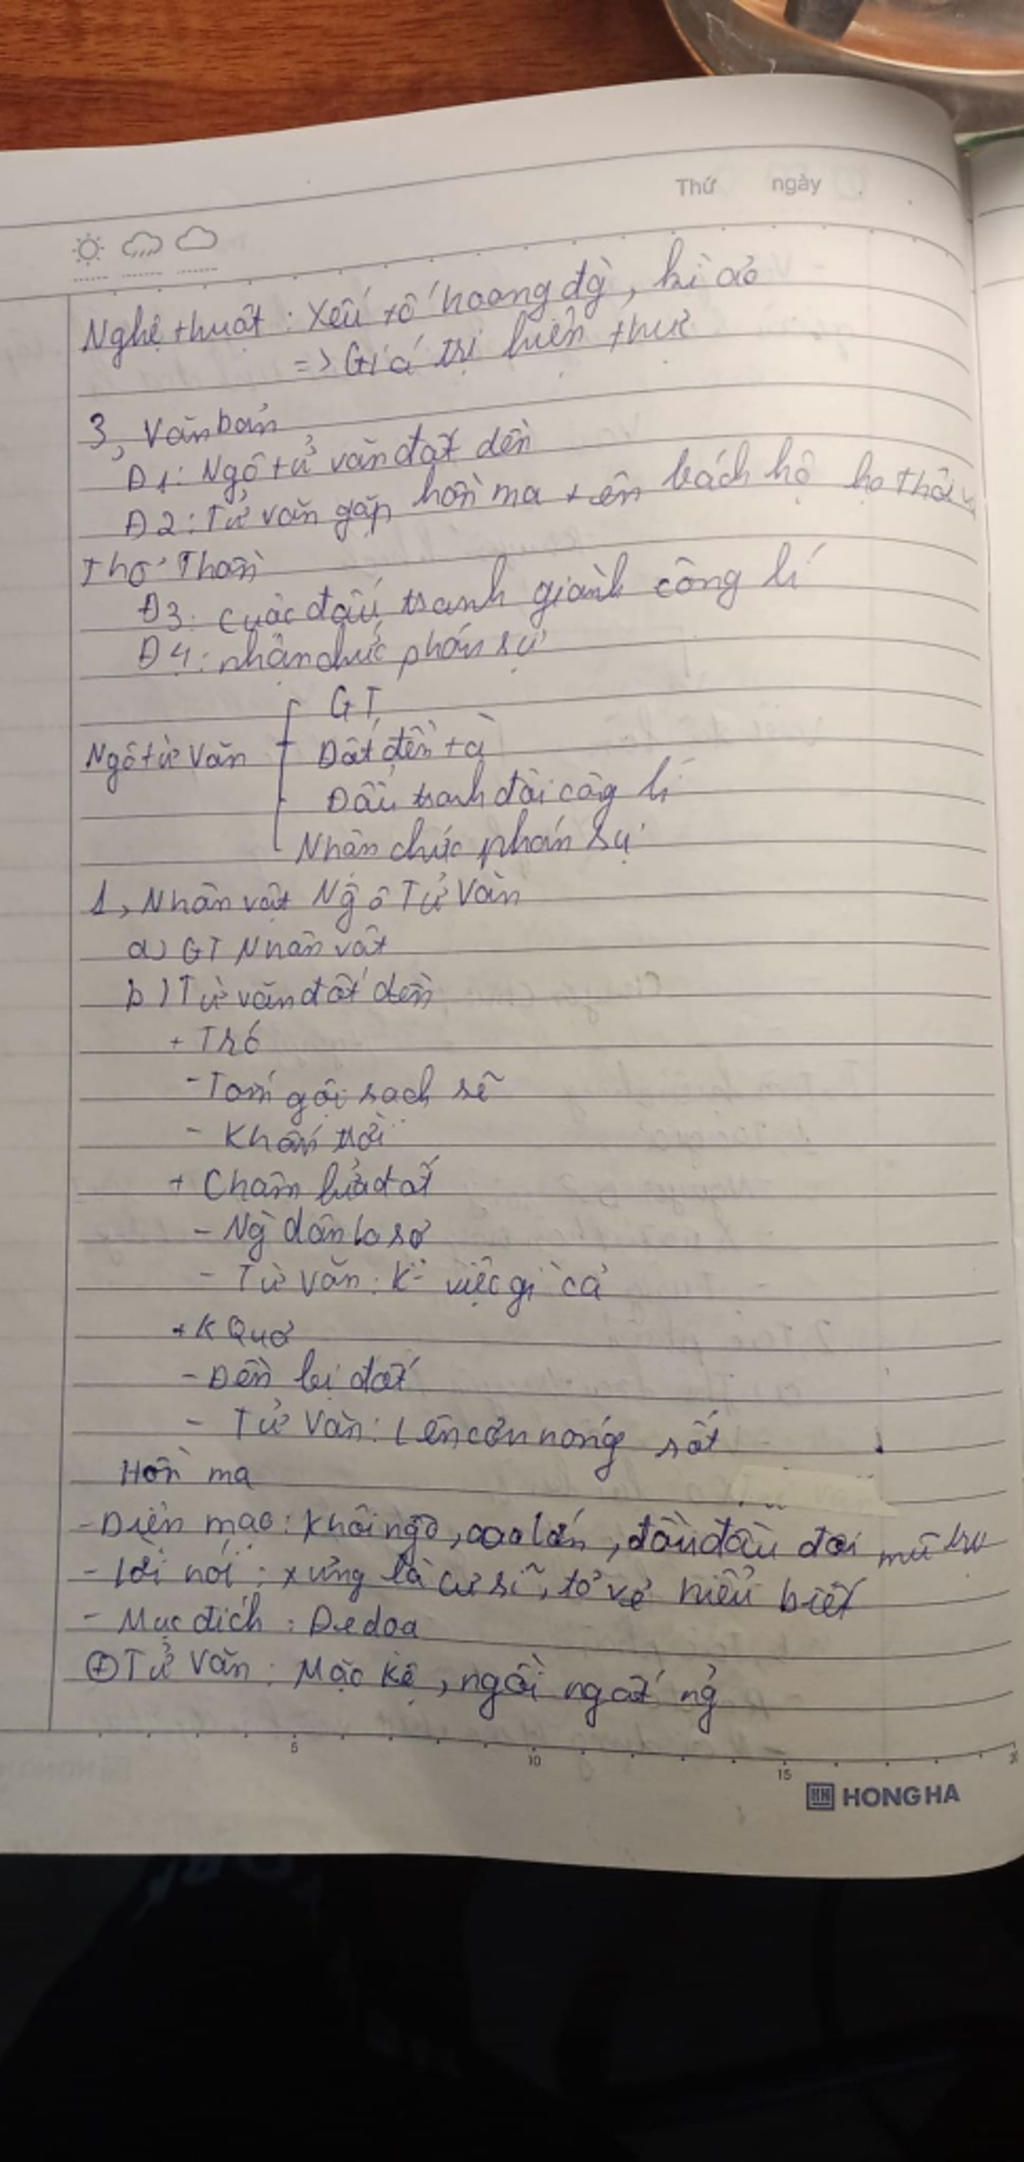 Thứ ngày
Nghệ thuật : Yếu tố hoang đg, kì ảo
=> Giá trị hiện thực
3, Văn bản
Đ1: Ngô tử văn đốt đền
Đ2: Tử văn gặp hồn ma tên bách hộ họ thôi và
Thổ Thần
Đ3: Cuộc đấu tranh giành công lí
Đ4: nhận chức phán sự
GT
Ngô tử Văn Đốt đền tà
Đấu tranh đòi công lí
Nhận chức phán sự
1, Nhân vật Ngô Tử Văn
a) GT Nhân vật
b) Tử văn đốt đền
+ Trc
- Tắm gội sạch sẽ
- Khấn trời
+ Châm lửa đốt
- Ng dân lo sợ
- Tử Văn: K việc gì cả
+ K Quả
- Đền bị đốt
- Tử Văn: Lên cơn nóng sốt
Hồn ma
- Diện mạo: Khôi ngô, cao lớn, đầu đội mũ trụ
- Lời nói: xưng là cư sĩ, tỏ vẻ hiểu biết
- Mục đích: Đe doạ
+ Tử Văn: Mặc kệ, ngồi ngất ng
5 10 15
HH HONG HA